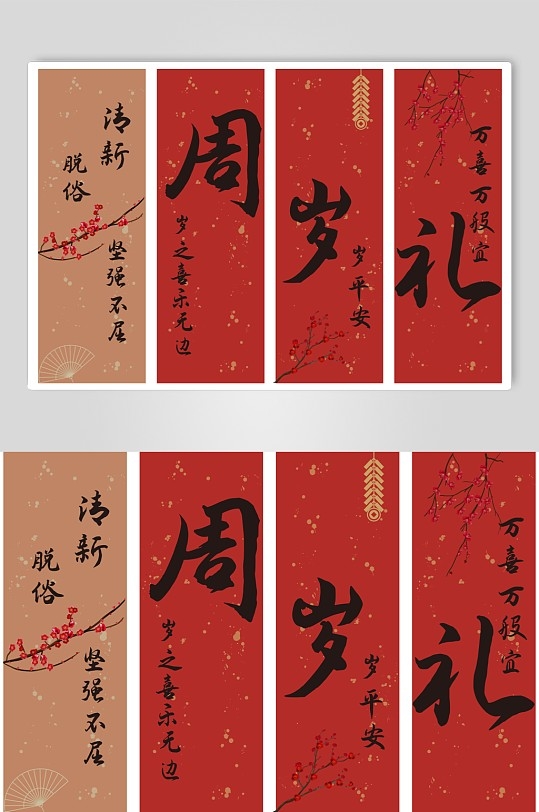 清新
脱俗
坚强不屈
周
岁之喜乐无边
岁
岁平安
礼
万喜万般宜
清新
脱俗
坚强不屈
周
岁之喜乐无边
岁
岁平安
礼
万喜万般宜